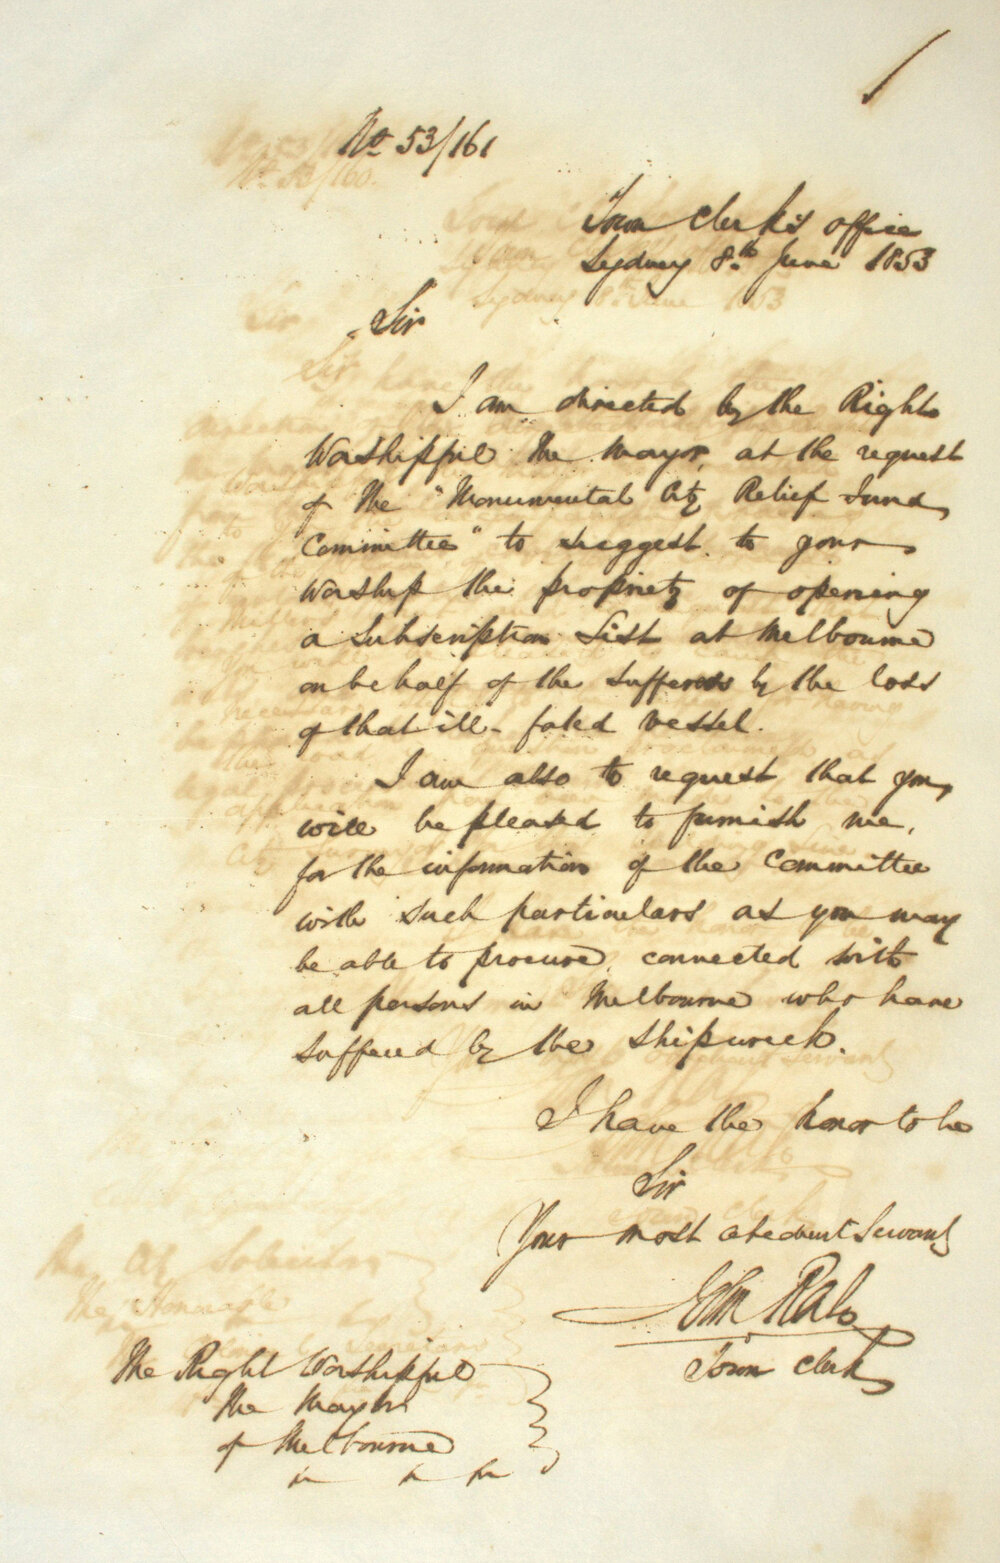 No 53/161
Town Clerk's Office
Sydney 8th June 1853
Sir
I am directed by the Right
Worshipful the Mayor, at the request
of the "Monumental City Relief Fund
Committee" to suggest to your
Worship the propriety of opening
a Subscription List at Melbourne
on behalf of the sufferers by the loss
of that ill-fated vessel.
I am also to request that you
will be pleased to furnish me,
for the information of the Committee
with such particulars as you may
be able to procure, connected with
all persons in Melbourne who have
suffered by the Shipwreck.
I have the honor to be
Sir
Your most obedient Servant
John Rae
Town Clerk
The Right Worshipful
The Mayor
of Melbourne